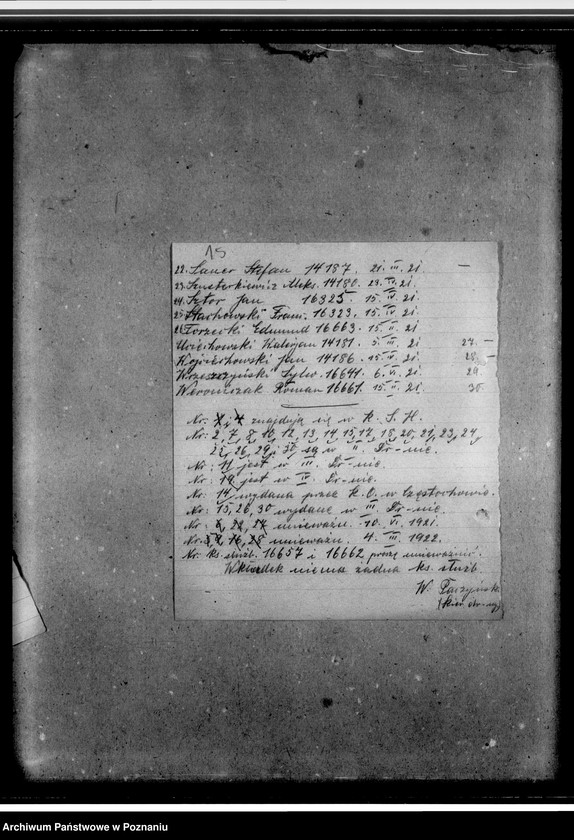 15
22. Lauer Stefan 14187. 21. III. 21. —
23. Szusterkiewicz Aleks. 14180. 23. IV. 21.
24. Sztor Jan 16325 15. IV. 21.
25. Stachowski Franc. 16323. 15. IV. 21.
26. Torzecki Edmund 16663. 15. II. 21.
Uciechowski Kaletjan 14181. 3. III. 21 27. —
Wojciechowski Jan 14186. 15. IV. 21. 28. —
Wrzeszczyński Sylw. 16641. 6. VI. 21. 29.
Weroniczak Roman 16661. 15. II. 21. 30.
Nr. 1, 4 znajdują się w K. S. H.
Nr: 2, 7, 8, 10, 12, 13, 14, 15, 17, 18, 20, 21, 23, 24,
25, 26, 29 i 30 są w II. Dr-nie.
Nr: 11 jest w III. Dr-nie.
Nr: 19 jest w IV. Dr-nie.
Nr: 14 wydana przez K. O. w Częstochowie.
Nr: 15, 26, 30 wydane w III Dr-nie.
Nr: 22, 27 unieważn. 10. VI. 1921.
Nr: 16, 28 unieważn. 4. III. 1922.
Nr: ks. służb. 16657 i 16662 proszę unieważnić.
Wkładek niema żadna ks. służb.
W.
Archiwum Państwowe w Poznaniu